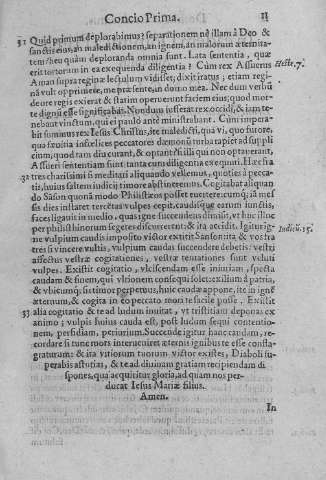 Concio Prima. 11
31 Quid primum deplorabimus? separationem nè illam à Deo &
sanctis eius, an maledictionem, an ignem, an malorum æternita-
tem? heu quàm deploranda omnia sunt. Lata sententia, quæ
erit tortorum in ea exequenda diligentia? Cum rex Assuerus Hester. 7.
Aman supra reginæ lectulum vidisset, dixit iratus, etiam regi-
nã vult opprimere, me præsente, in domo mea. Nec dum verbũ
de ore regis exierat & statim operuerunt faciem eius, quod mor-
te dignũ esse significabãt. Nondum iusserat rex occidi, & iam te-
nebant vinctum, qui ei paulò ante ministrabant. Cùm impera-
bit summus rex Iesus Christus, ite maledicti, quâ vi, quo furore,
qua sæuitia infœlices peccatores dæmonũ turba rapiet ad suppli-
cium, quod tam diu curant, & optant? Si illi qui non optauerant,
Assueri sententiam sunt tanta cum diligentia exequuti. Hæc fra
32 tres charissimi si meditari aliquando vellemus, quoties à pecca-
tis, huius saltem iudicij timore abstineremus. Cogitabat aliquan-
do Sãson quonã modo Philistæos posset euertere: cumq; iã mes-
sis dies instaret tercẽtas vulpes cepit, caudasq; earum iunctis,
faces ligauit in medio, quas igne succendens dimisit, vt huc illuc
per philisthinorum segetes discurrerent, & ita accidit. Igitur ig- Indicũ. 15.
ne vulpium caudis imposito victor extitit Sanson: ita & vos fra
tres si vincere vultis, vulpium caudas succendere debetis: vestri
affectus vestræ cogitationes, vestræ tentationes sunt veluti
vulpes. Existit cogitatio, vlciscendam esse iniuriam, specta
caudam & finem, qui vltionem consequi solet: exilium à patria,
& vbicumq; sis timor perpetuus, huic caudæ appone, ite in ignẽ
æternum, & cogita in eo peccato mori te facile posse. Existit
33 alia cogitatio & te ad ludum inuitat, vt tristitiam deponas ex
animo; vulpis huius cauda est, post ludum sequi contentio-
nem, perfidiam, periurium. Succende igitur hanc caudam, re-
cordare si tunc mors interueniret æternis ignibus te esse confla-
graturum: & ita vitiorum tuorum victor existes, Diaboli su-
perabis astutias, & te ad diuinam gratiam recipiendam di
spones, qua acquiritur gloria, ad quam nos per-
ducat Iesus Mariæ filius.
Amen.
In